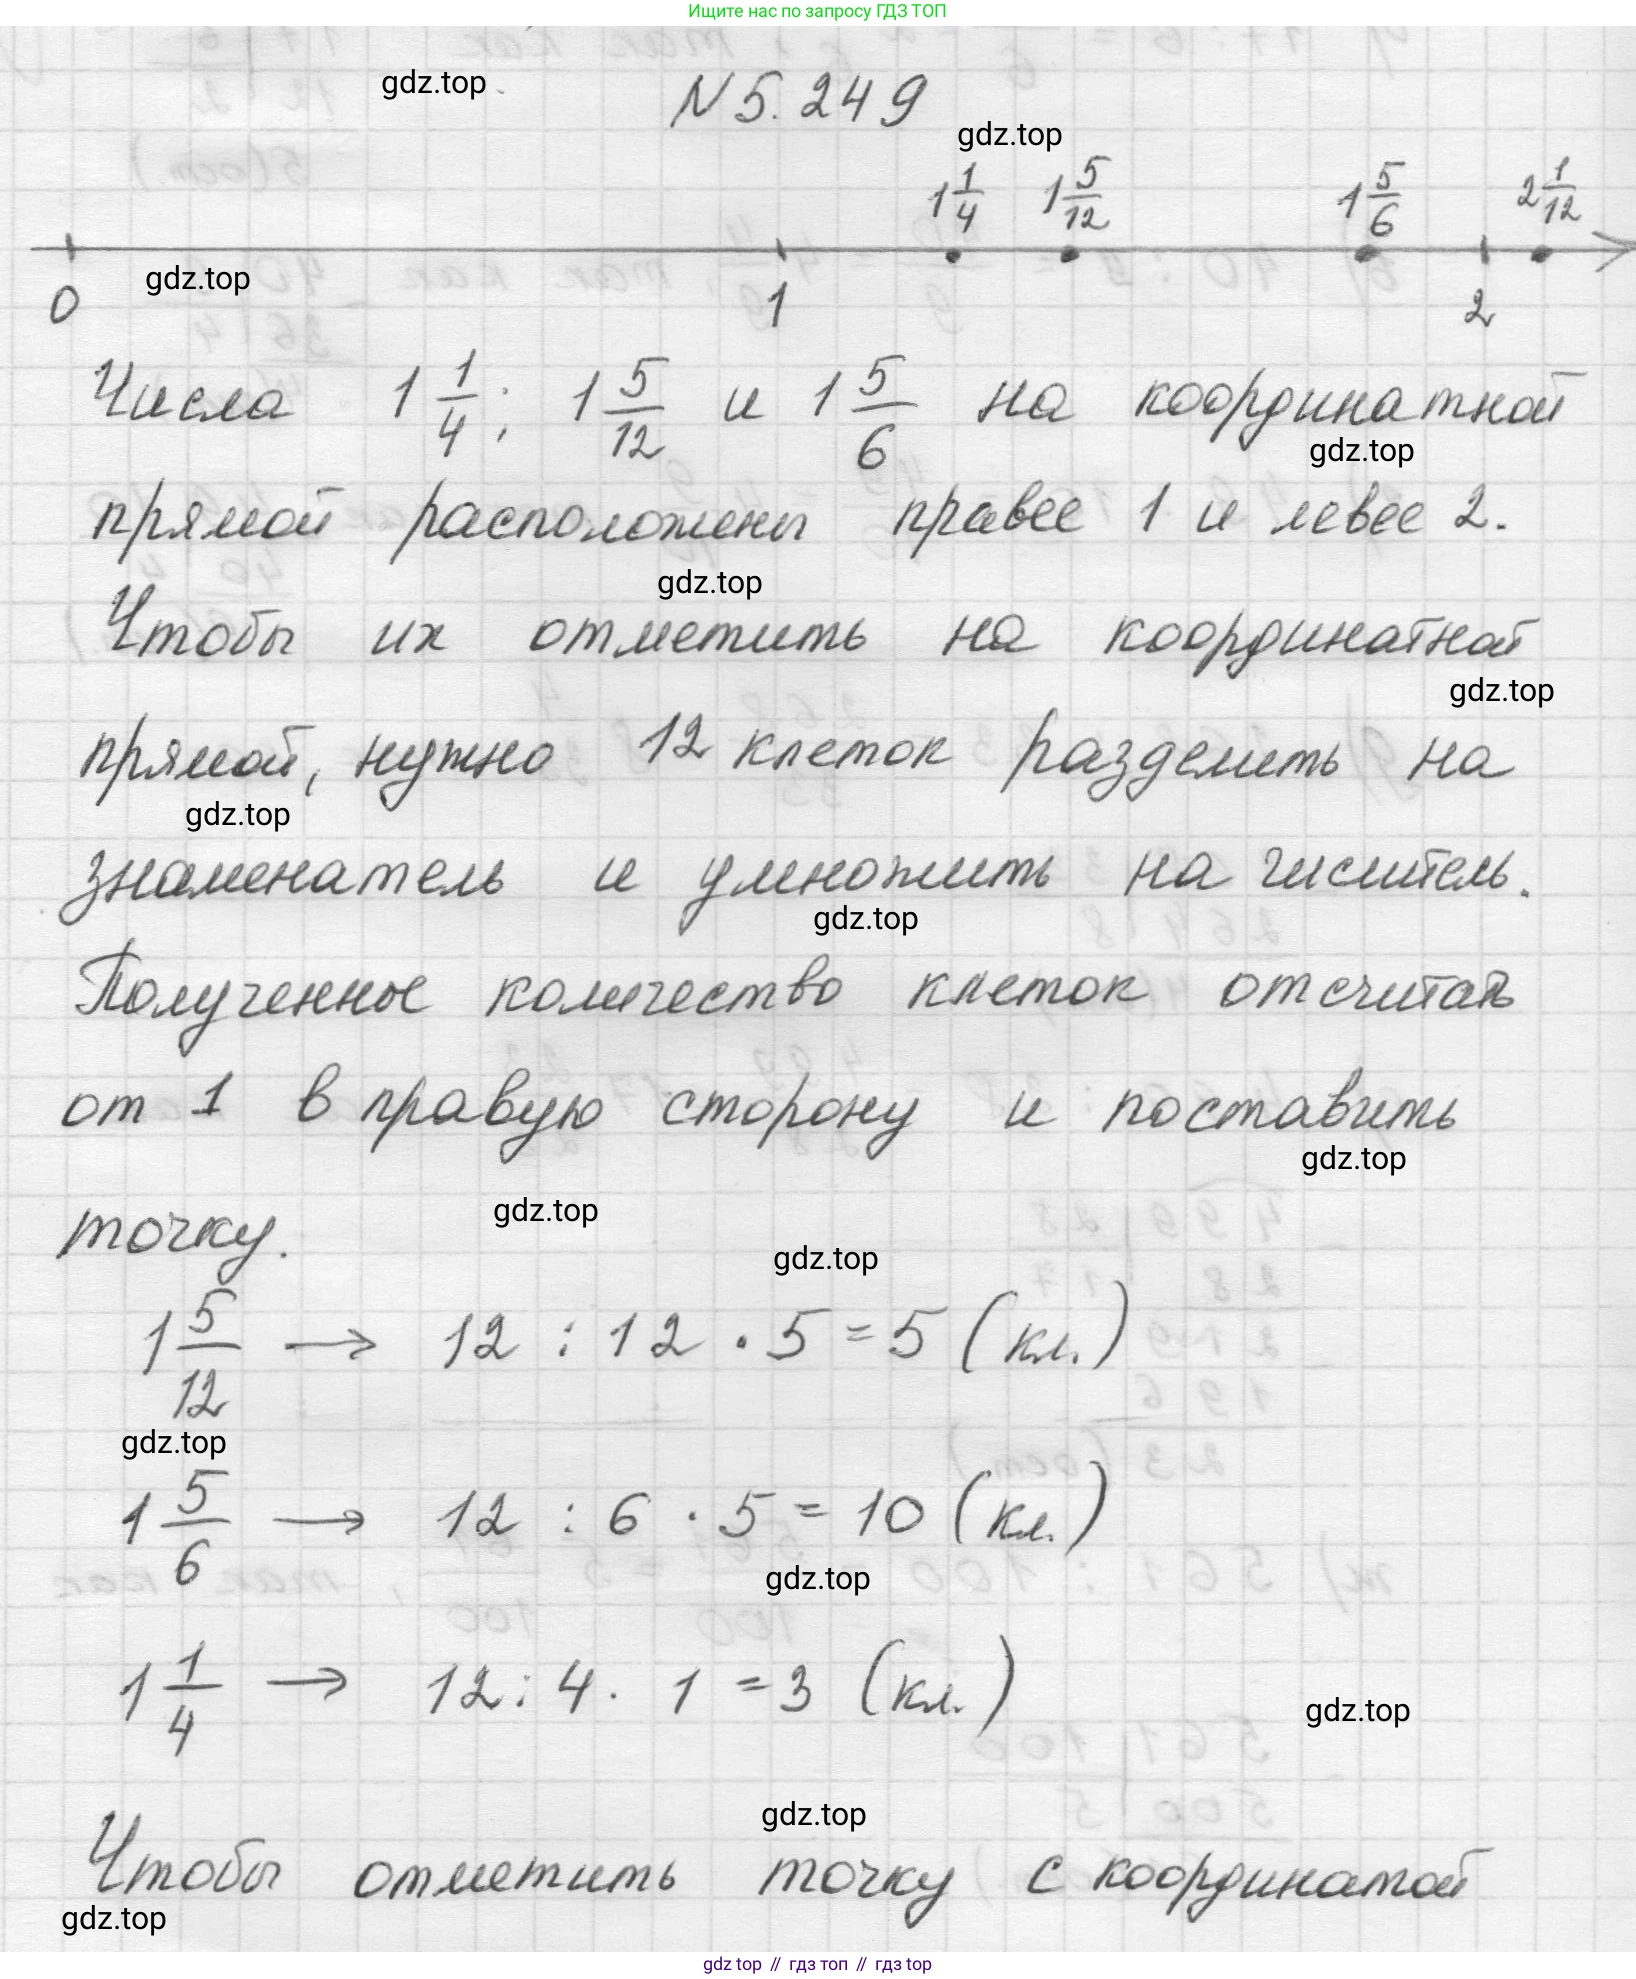 Ищите нас по запросу ГДЗ ТОП
gdz.top
N 5. 249
gdz.top
1 1/4 1 5/12 1 5/6 2 1/12
gdz.top
0 1 2
Числа 1 1/4; 1 5/12 и 1 5/6 на координатной
gdz.top
прямой расположены правее 1 и левее 2.
gdz.top
Чтобы их отметить на координатной
gdz.top
прямой, нужно 12 клеток разделить на
gdz.top
знаменатель и умножить на числитель.
gdz.top
Полученное количество клеток отсчитать
от 1 в правую сторону и поставить
gdz.top
gdz.top
точку.
gdz.top
1 5/12 → 12 : 12 · 5 = 5 (кл.)
gdz.top
1 5/6 → 12 : 6 · 5 = 10 (кл.)
gdz.top
1 1/4 → 12 : 4 · 1 = 3 (кл.)
gdz.top
gdz.top
Чтобы отметить точку с координатой
gdz.top
gdz top // гдз топ // gdz top